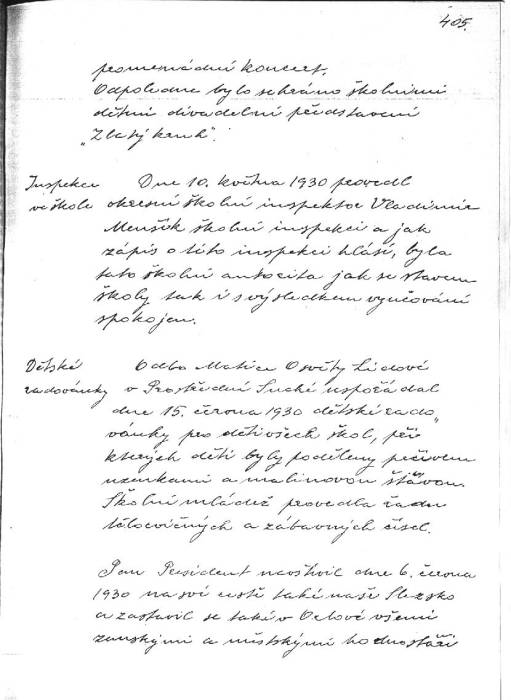 405.
promenádní koncert.
Odpoledne bylo sehráno školními
dětmi divadelní představení
„Zlatý kruh".
Inspekce Dne 10. května 1930 provedl
ve škole okresní školní inspektor Vladimír
Menšík školní inspekci a jak
zápis o této inspekci hlásí, byla
tato školní autorita jak se stavem
školy tak i s výsledkem vyučování
spokojen.
Dětské Odbor Matice Osvěty Lidové
radovánky v Prostřední Suché uspořádal
dne 15. června 1930 dětské rado„
vánky pro děti všech škol, při
kterých děti byly poděleny pečivem
uzenkami a malinovou šťávou.
Školní mládež provedla řadu
tělocvičných a zábavných čísel.
Pan President navštívil dne 6. června
1930 na své cestě také naše Slezsko
a zastavil se také v Orlové všemi
zemskými a městskými hodnostáři